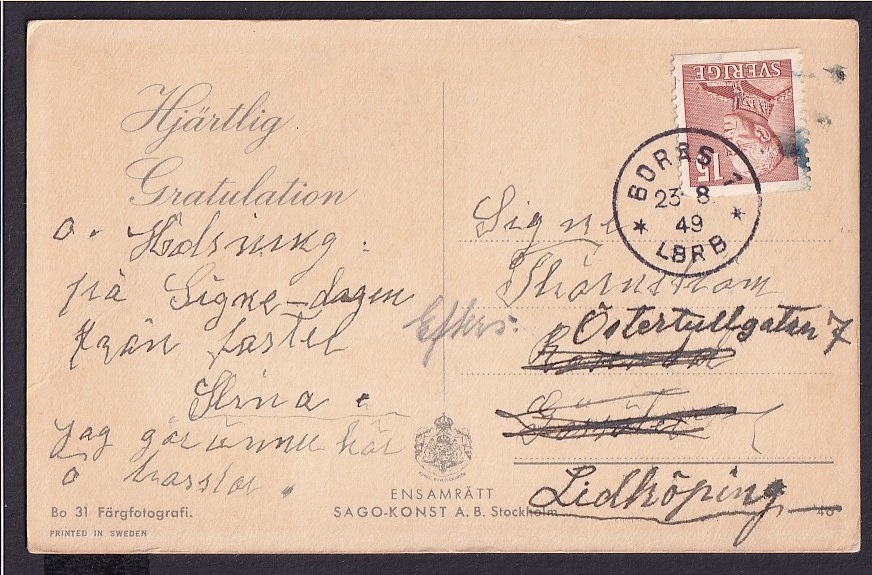 Hjärtlig
Gratulation
o. Hälsning.
på Signe-dagen
från faster
Stina.
Jag går ännu här
o
SVERIGE
15
BORÅS 1
23 8
49
LBRB
Signe
Thörnström
Efters:
Östertullgatan 7
Lidköping
ENSAMRÄTT
SAGO-KONST A.B. Stockholm
Bo 31 Färgfotografi.
PRINTED IN SWEDEN